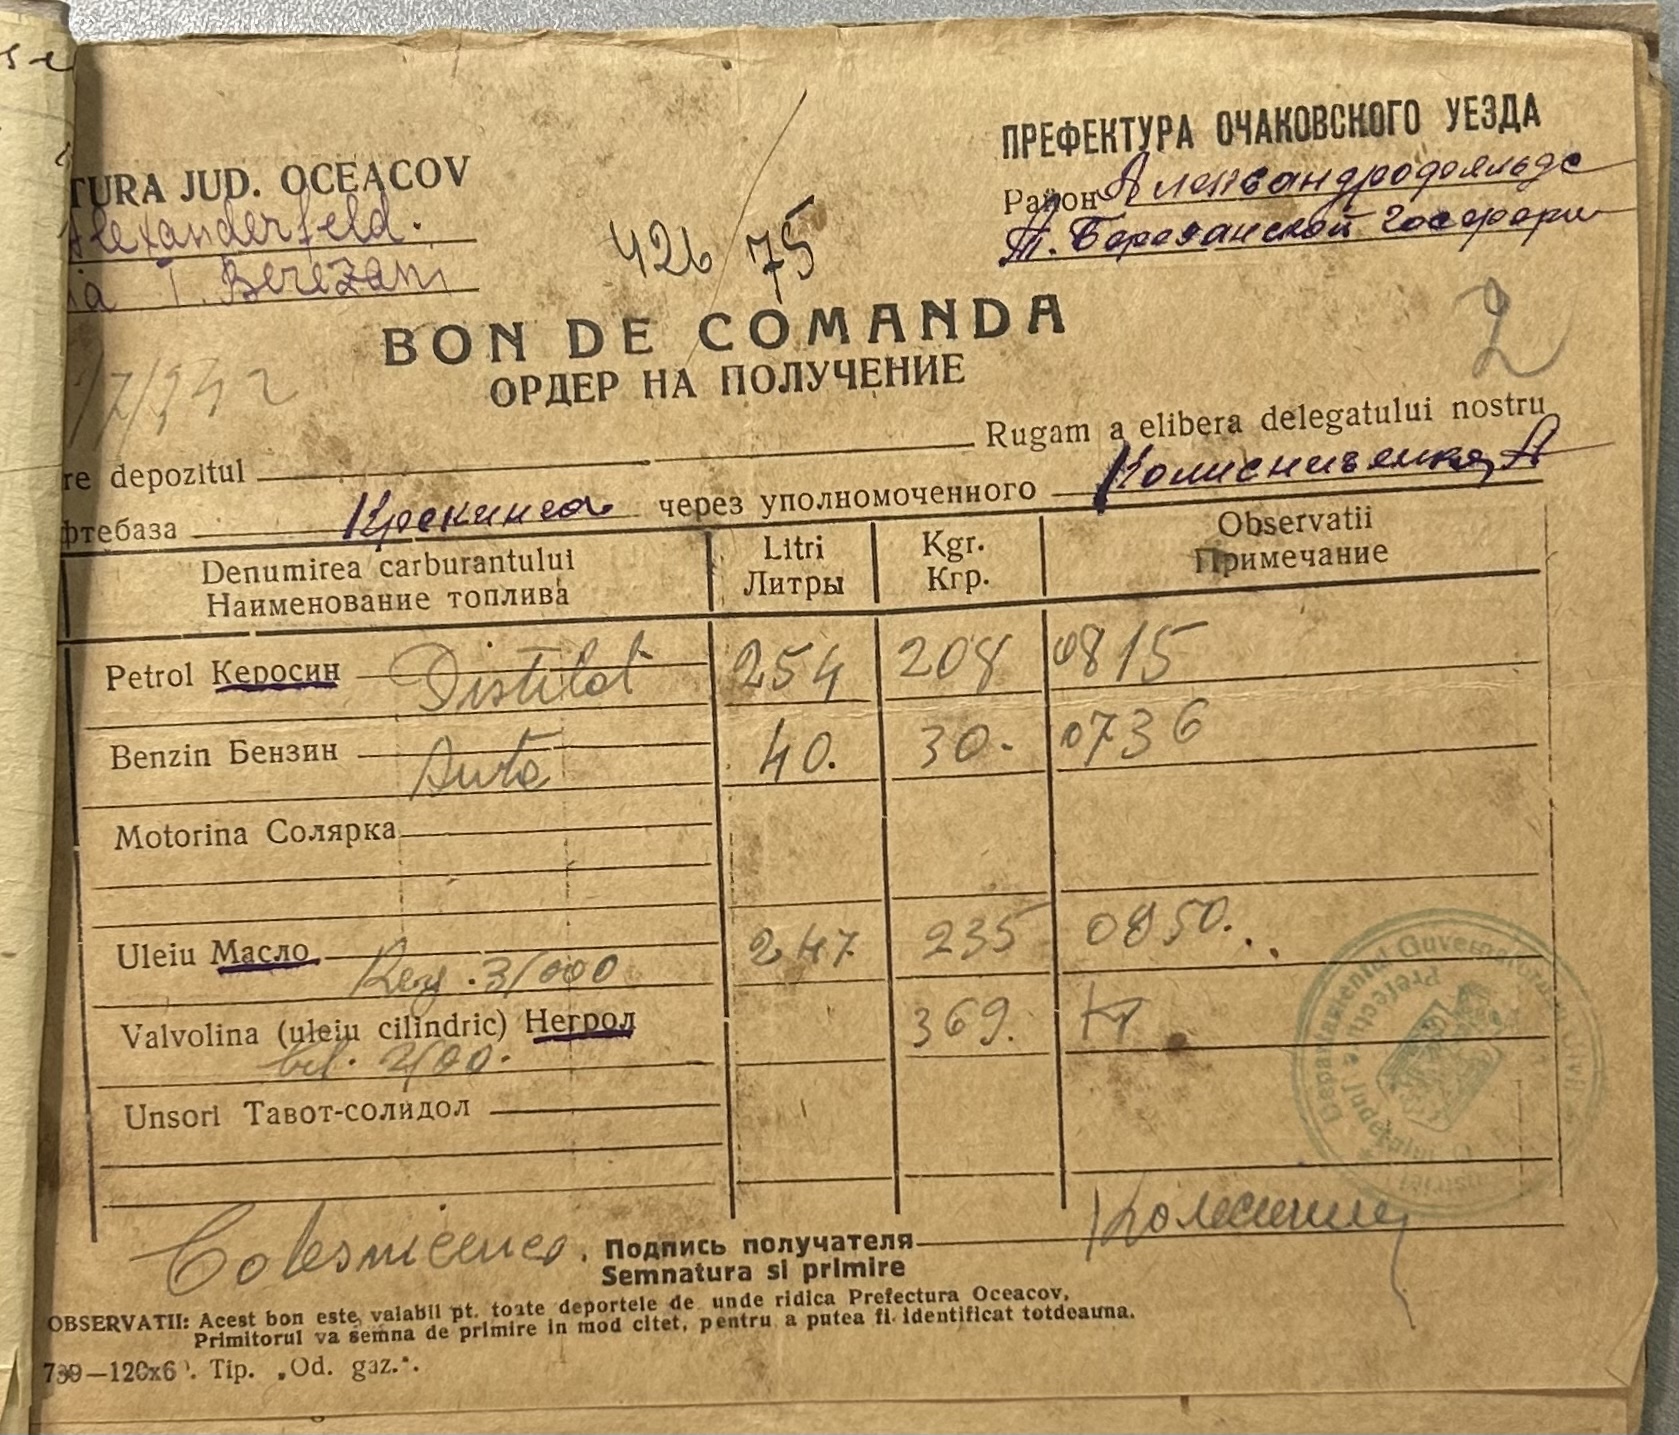 TURA JUD. OCEACOV
Alexanderfeld.
ia T. Berezani
426/75
ПРЕФЕКТУРА ОЧАКОВСКОГО УЕЗДА
Район Александрофельде
Т. Березанской Госферми
BON DE COMANDA
ОРДЕР НА ПОЛУЧЕНИЕ
2
/7/942
re depozitul Rugam a elibera delegatului nostru
фтебаза Крекинга через уполномоченного Колисниченко А
Denumirea carburantului Litri Kgr. Observatii
Наименование топлива Литры Кгр. Примечание
Petrol Керосин Distilat 254 208 0815
Benzin Бензин Auto 40. 30. 0736
Motorina Солярка
Uleiu Масло Reg. 3/000 247 235 0950.
Valvolina (uleiu cilindric) Негрол 369.
cil. 2/00.
Unsori Тавот-солидол
Departamentul Guvernatorului Civil
Prefecture Județului
Colesnicenco. Подпись получателя
Semnatura si primire
OBSERVATII: Acest bon este valabil pt. toate deportele de unde ridica Prefectura Oceacov,
Primitorul va semna de primire in mod citet, pentru a putea fi identificat totdeauna.
739—120x6 . Tip. „Od. gaz.".